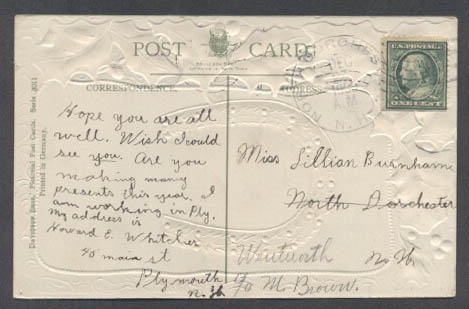 POST CARD
CORRESPONDENCE
ADDRESS
Davidson Bros.' Pictorial Post Cards. Serie 3011
Printed in Germany.
Hope you are all
well. Wish I could
see you. Are you
making many
presents this year. I
am working in Ply.
My address is
Howard E. Whitcher
40 main st
Plymouth
N. H.
NORTH DORCHESTER
DEC
A.M.
N.H.
U.S. POSTAGE
ONE CENT
Miss Lillian Burnham
North Dorchester
Wentworth N. H.
℅ M. Brown.